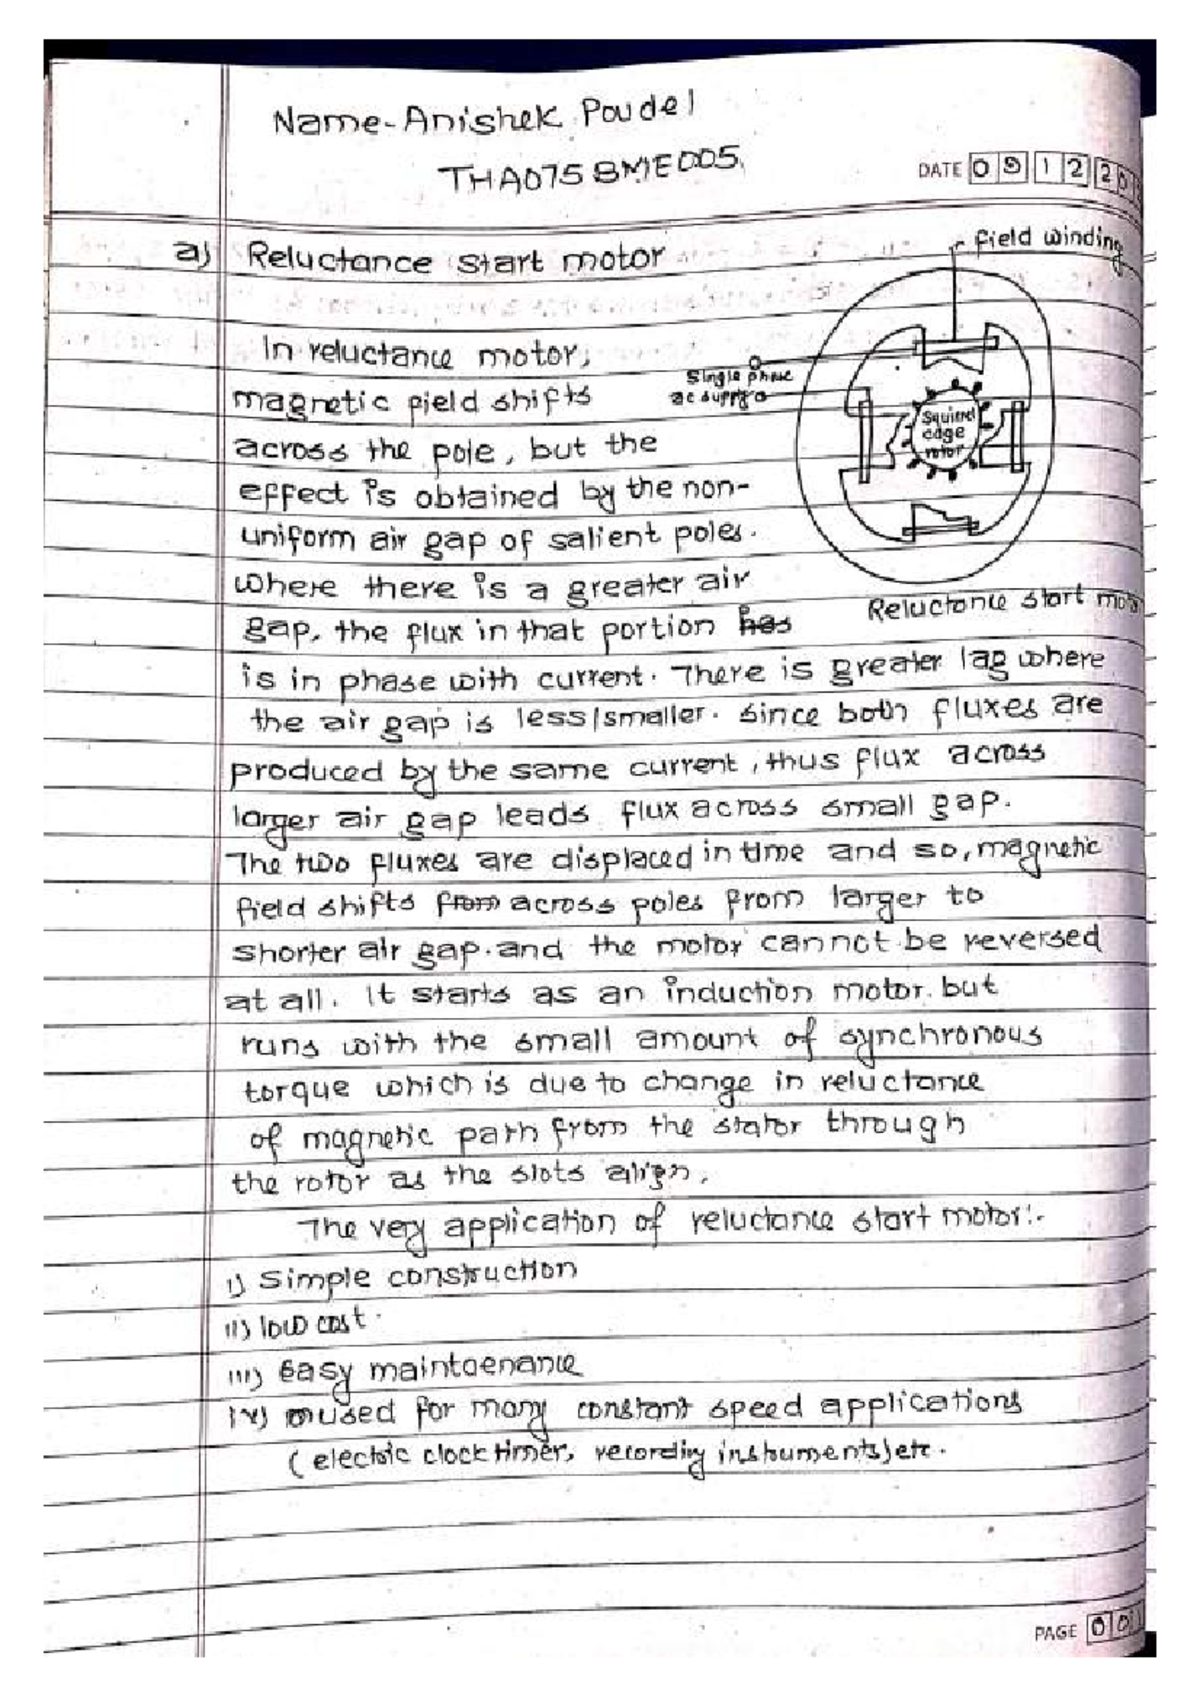 Name-Anishek Poudel
THA075BME005
DATE 09 12 20
a) Reluctance start motor
field winding
Single phase
ac supply
Squirrel
cage
rotor
Reluctance start moto
In reluctance motor,
magnetic field shifts
across the pole, but the
effect is obtained by the non-
uniform air gap of salient poles.
where there is a greater air
gap, the flux in that portion has
is in phase with current. There is greater lag where
the air gap is less/smaller. since both fluxes are
produced by the same current, thus flux across
larger air gap leads flux across small gap.
The two fluxes are displaced in time and so, magnetic
field shifts from across poles from larger to
shorter air gap. and the motor cannot be reversed
at all. It starts as an induction motor. but
runs with the small amount of synchronous
torque which is due to change in reluctance
of magnetic path from the stator through
the rotor as the slots align.
The very application of reluctance start motor:-
i) Simple construction
ii) low cost.
iii) Easy maintaenance
iv) mused for many constant speed applications
(electric clock timer, recording instruments) etc.
PAGE 00